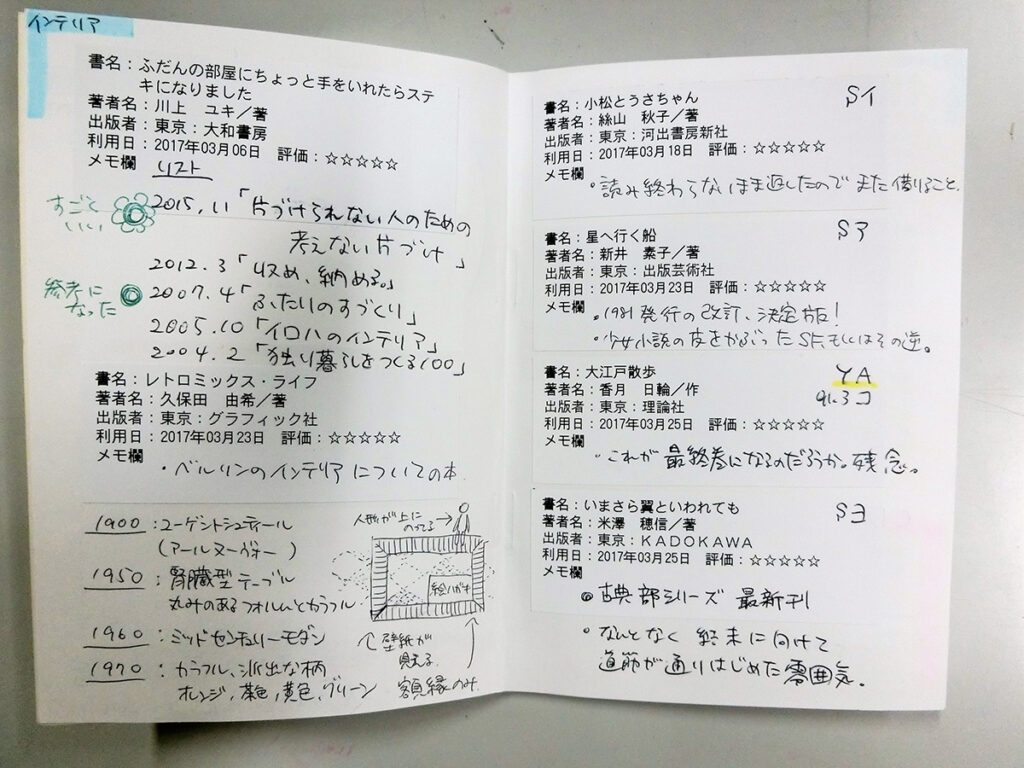 インテリア
書名：ふだんの部屋にちょっと手をいれたらステ
キになりました
著者名：川上　ユキ／著
出版者：東京：大和書房
利用日：2017年03月06日　評価：☆☆☆☆☆
メモ欄　リスト
すごく
いい
2015.11「片づけられない人のための
考えない片づけ」
2012.3「収め、納める。」
参考に
なった
2007.4「ふたりのすづくり」
2005.10「イロハのインテリア」
2004.2「独り暮らしをつくる100」
書名：レトロミックス・ライフ
著者名：久保田　由希／著
出版者：東京：グラフィック社
利用日：2017年03月23日　評価：☆☆☆☆☆
メモ欄
・ベルリンのインテリアについての本.
1900：ユーゲントシュティール
（アールヌーヴォー）
1950：腎臓型テーブル
丸みのあるフォルムとカラフル
1960：ミッドセンチュリーモダン
1970：カラフル、派出な柄
オレンジ,茶色,黄色,グリーン
人形が上に
のってる→
絵ハガキ
壁紙が
見える
額縁のみ
書名：小松とうさちゃん
Sイ
著者名：絲山　秋子／著
出版者：東京：河出書房新社
利用日：2017年03月18日　評価：☆☆☆☆☆
メモ欄
・読み終わらないまま返したのでまた借りること.
書名：星へ行く船
Sア
著者名：新井　素子／著
出版者：東京：出版芸術社
利用日：2017年03月23日　評価：☆☆☆☆☆
メモ欄
・1981発行の改訂、決定版！
・少女小説の皮をかぶったSF,もしくはその逆。
書名：大江戸散歩
YA
著者名：香月　日輪／作
91.3コ
出版者：東京：理論社
利用日：2017年03月25日　評価：☆☆☆☆☆
メモ欄
・これが最終巻になるのだろうか。残念。
書名：いまさら翼といわれても
Sヨ
著者名：米澤　穂信／著
出版者：東京：KADOKAWA
利用日：2017年03月25日　評価：☆☆☆☆☆
メモ欄
◎古典部シリーズ 最新刊
・なんとなく終末に向けて
道筋が通りはじめた雰囲気.